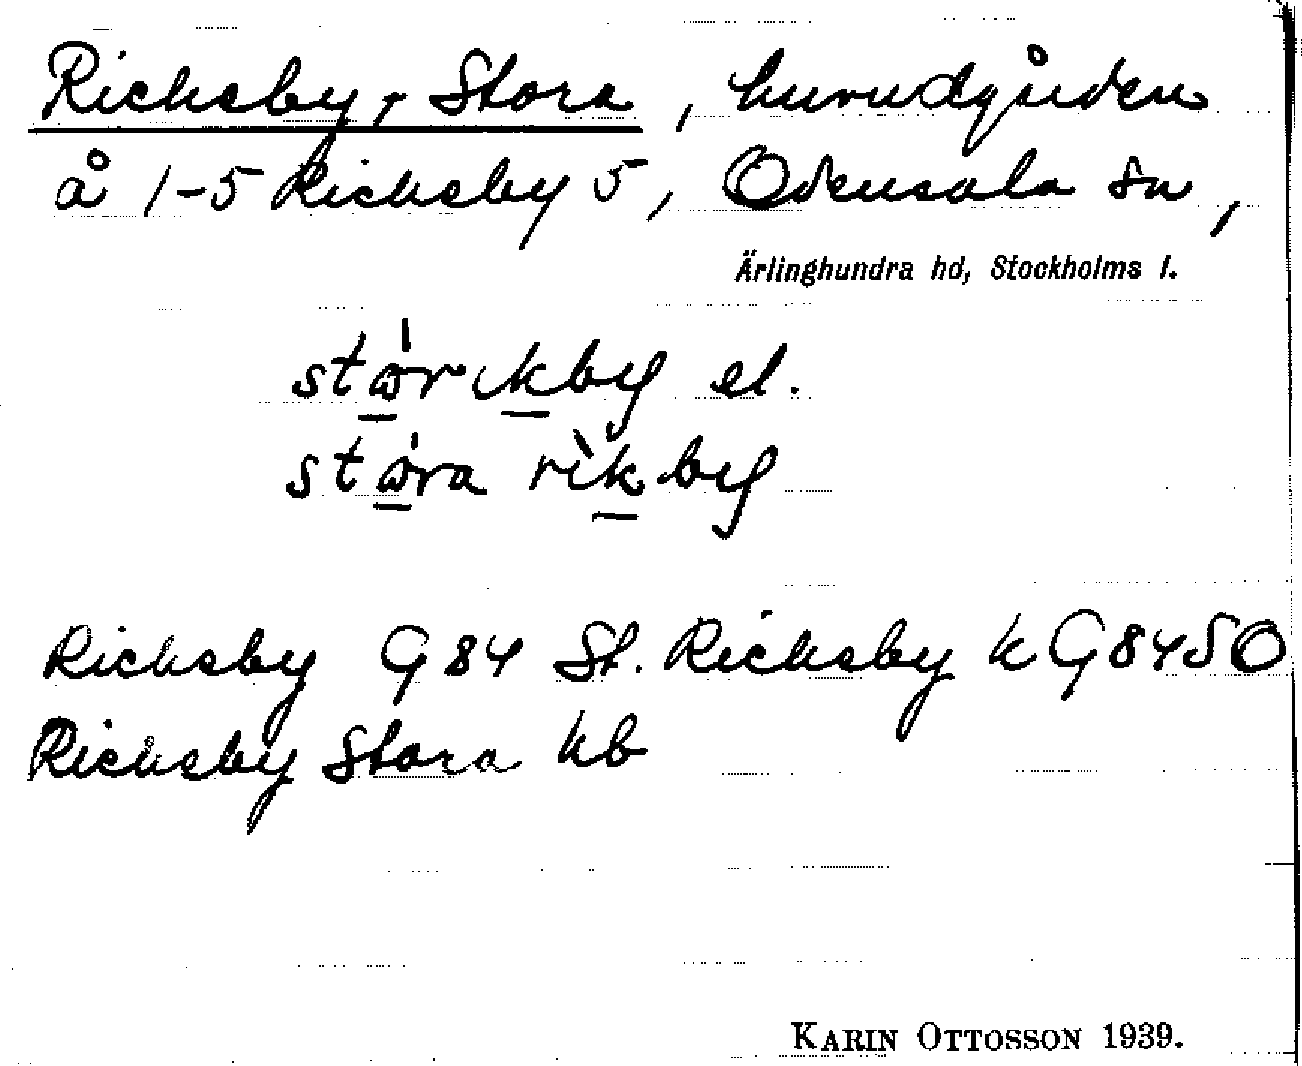 Ricksby, Stora, huvudgården
å 1-5 Ricksby 5, Odensala sn,
Ärlinghundra hd, Stockholms l.
stώ̱rıḵby el.
stώ̱ra rìḵby
Ricksby G84 St. Ricksby k G84SO
Ricksby Stora kb
KARIN OTTOSSON 1939.